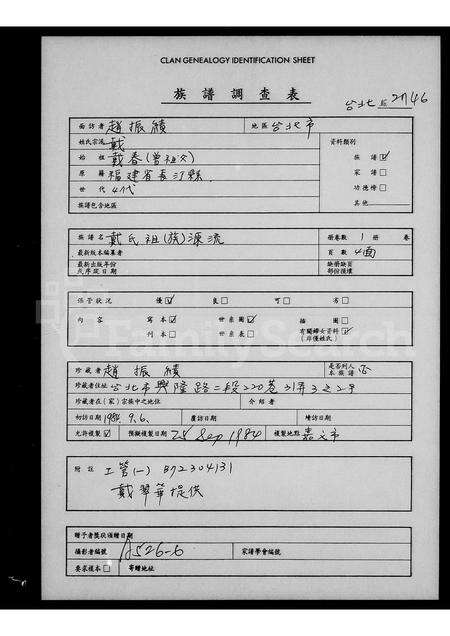 CLAN GENEALOGY IDENTIFICATION SHEET
族譜調查表
台北 2746
面訪者 趙振績 地區 台北市
姓氏宗流 戴 資料類別
始祖 戴春(曾祖父) 族譜 ☑
原籍 福建省長汀縣 家譜 □
世代 4代 功德榜 □
族譜包含地區 其他
族譜名 戴氏祖(族)源流 冊卷數 1 冊 卷
最新版本編纂者 頁數 4面
最新出版年份及序跋日期 缺冊缺頁部份後壞
保管狀況 優 ☑ 良 □ 可 □ 劣 □
內容 寫本 ☑ 世系圖 ☑ 插圖 □
刊本 □ 世系表 □ 有關婦女資料 ☑ (非僅姓氏)
珍藏者 趙振績 是否列入本族譜 否
珍藏者住址 台北市興隆路二段220巷31弄3之2号
珍藏者在(家)宗族中之地位 介紹者
初訪日期 1984.9.6. 覆訪日期 續訪日期
允許複製 ☑ 預擬複製日期 25 Sep 1984 複製地點 嘉义市
附註 工管(一) B72304131
戴翠華提供
贈予者獎狀頒贈日期
攝影者編號 A526-6 家譜學會編號
要求複本 □ 寄贈地址
FamilySearch